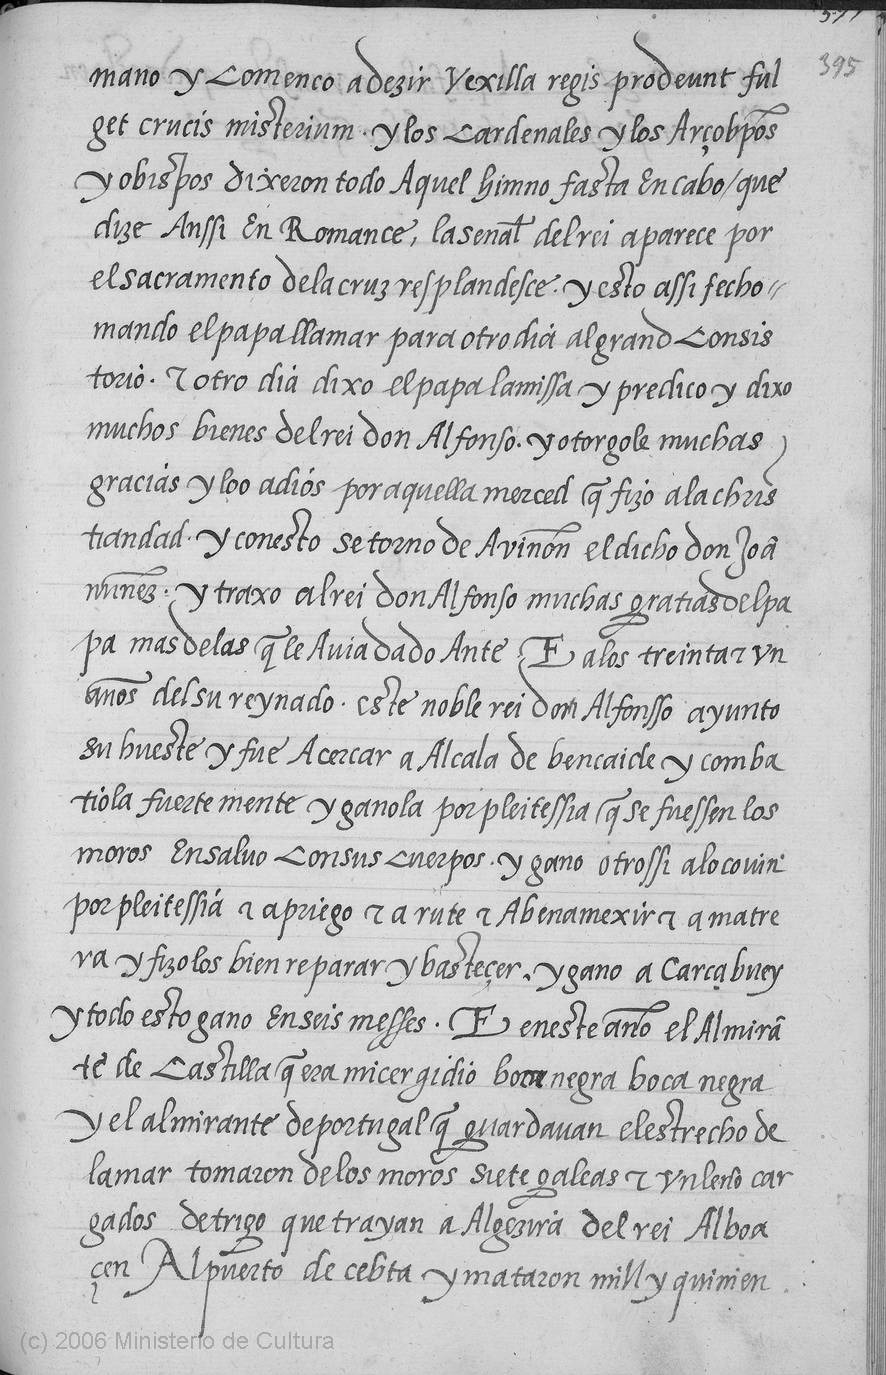 395
mano y Comenco a dezir Vexilla regis prodeunt ful
get crucis misterium · y los Cardenales y los Arçobpõs
y obispos dixeron todo Aquel himno fasta En cabo / que
dize Anssi En Romance, la señal del rei aparece por
el sacramento de la cruz resplandesce · y esto assi fecho =
mando el papa llamar para otro dia al grand Consis
torio · τ otro dia dixo el papa la missa y predico y dixo
muchos bienes del rei don Alfonso · y otorgole muchas
gracias y loo a dios por aquella merced q̃ fizo a la chris
tiandad · y con esto se torno de Aviñon el dicho don Joã
nuñez · y traxo al rei don Alfonso muchas gratias del pa
pa mas de las q̃ le Avia dado Ante E a los treinta τ vn
años del su reynado · este noble rei don Alfonsso ayunto
su hueste y fue A cercar a Alcala de bencaide y comba
tiola fuerte mente y ganola por pleitessia q̃ se fuessen los
moros En salvo Con sus Cuerpos · y gano otrossi a locouin
por pleitessia τ a priego τ a rute τ A benamexir τ a matre
ra y fizo los bien reparar y basteçer · y gano a Carcabuey
y todo esto gano En seis messes · E en este año el Almirã
te de Castilla q̃ era micer gidio boca negra boca negra
y el almirante de portugal q̃ guardauan el estrecho de
la mar tomaron de los moros siete galeas τ vn leño car
gados de trigo que trayan a Algezira del rei Alboa
çen Al puerto de cebta y mataron mill y quinien
(c) 2006 Ministerio de Cultura